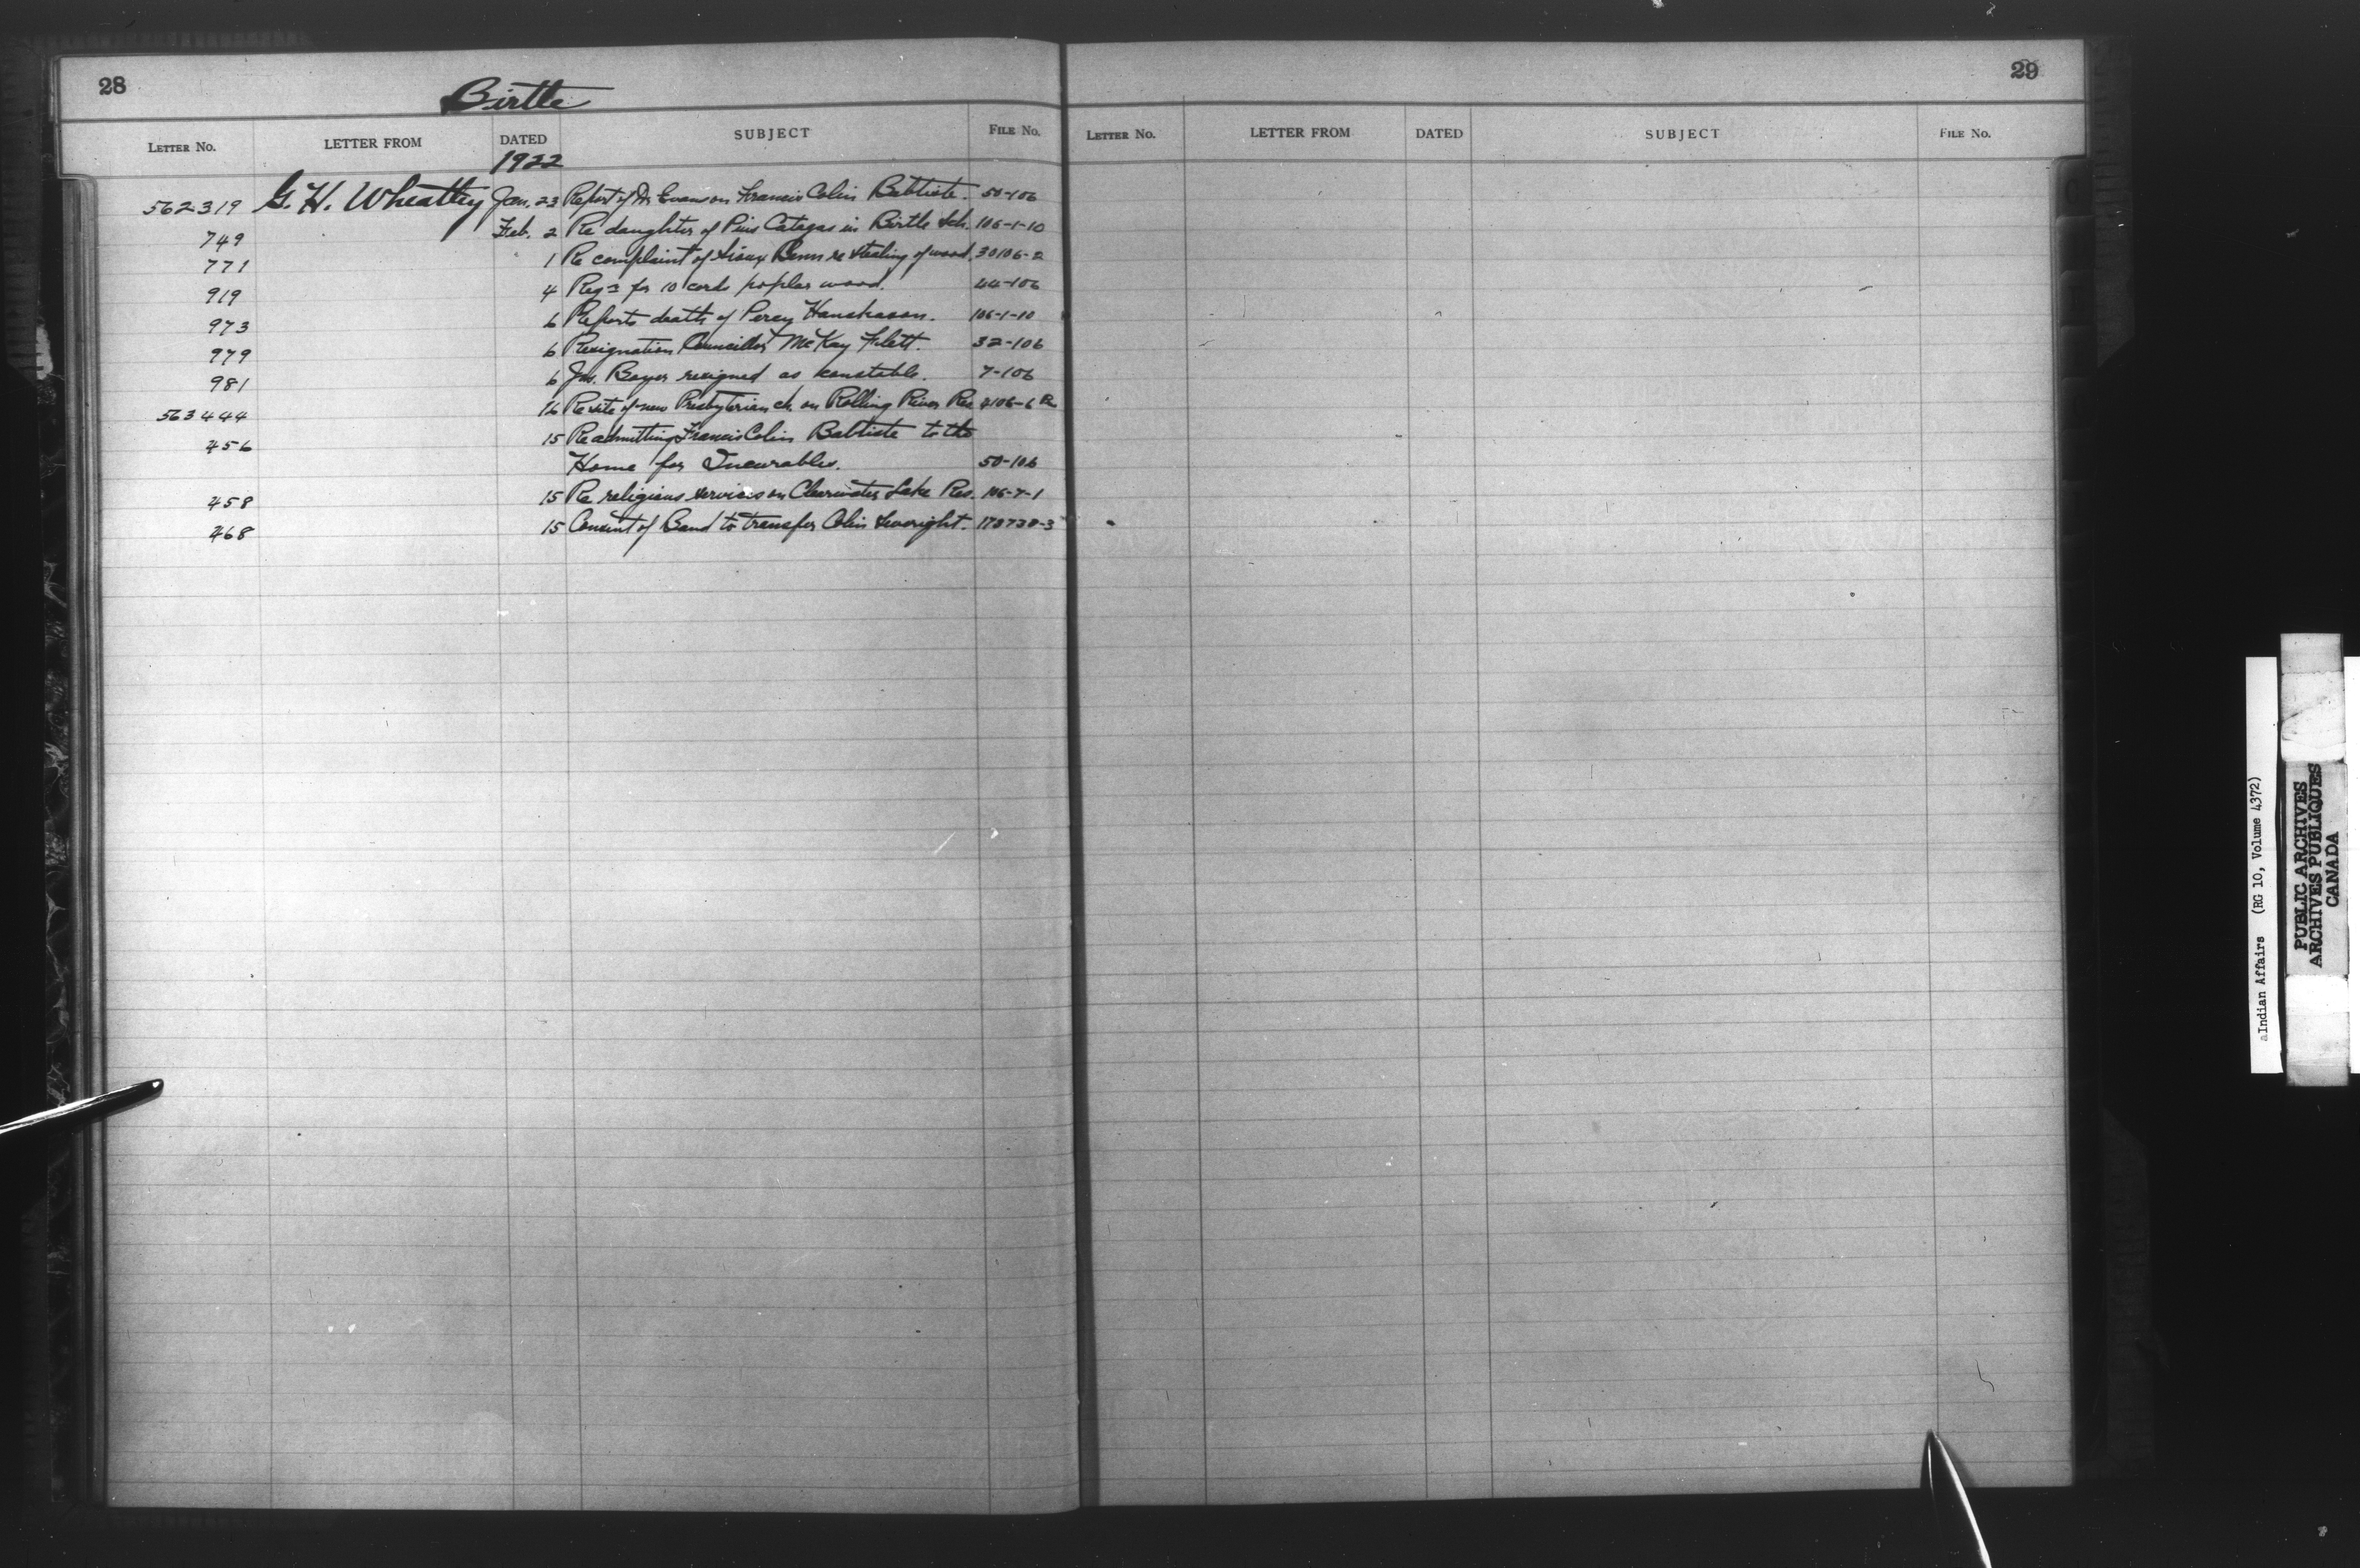 28
Birtle
LETTER NO. LETTER FROM DATED SUBJECT FILE NO.
1922
562319 G. H. Wheatley Jan. 23 Report of Dr Evans on Francis Colin Babtiste. 50-106
749 Feb. 2 Re daughter of Pius Catagas in Birtle Sch. 106-1-10
771 1 Re complaint of Sioux Benn re stealing of wood. 30106-2
919 4 Reqn for 10 cords poplar wood. 44-106
973 6 Reports death of Percy 106-1-10
979 6 Resignation Councillor McKay Flett. 32-106
981 6 Jos. Boyer resigned as constable. 7-106
563444 16 Re site of new Presbyterian ch. on Rolling River Res 4106-6
456 15 Re admitting Francis Colin Babtiste to the
Home for Incurables. 50-106
458 15 Re religious services on Clearwater Lake Res. 106-7-1
468 15 Consent of Band to transfer Colin Severight. 173738-3
29
LETTER NO. LETTER FROM DATED SUBJECT FILE NO.
aIndian Affairs (RG 10, Volume 4372)
PUBLIC ARCHIVES
ARCHIVES PUBLIQUES
CANADA